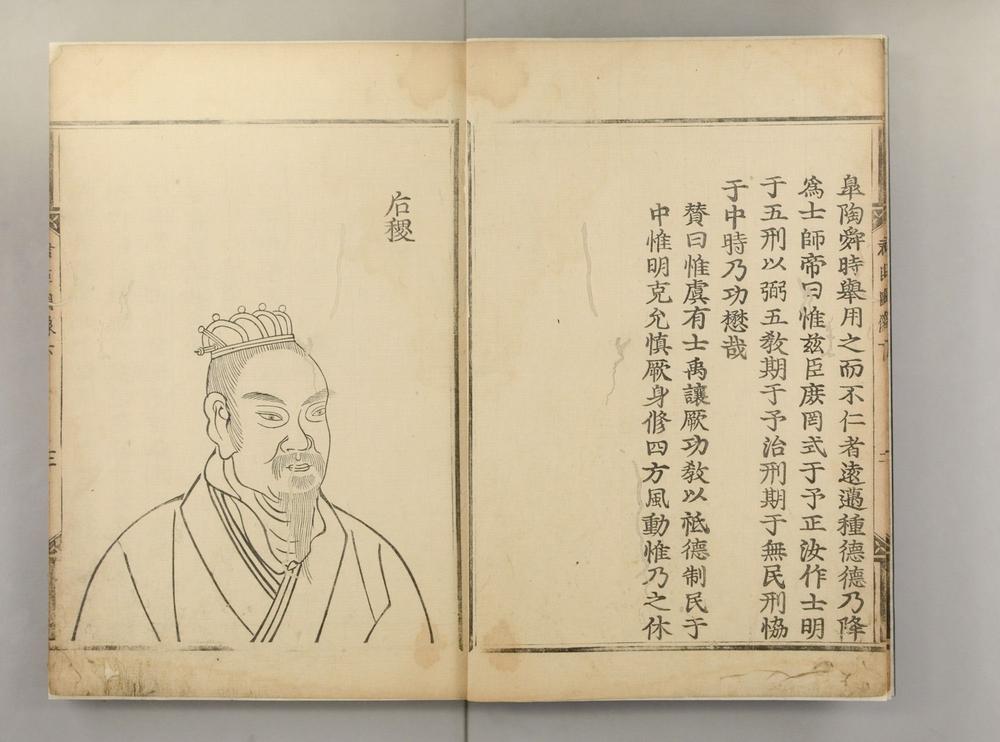 皐陶舜時舉用之而不仁者遠邁種德德乃降
爲士師帝曰惟兹臣庶罔或于予正汝作士明
于五刑以弼五敎期于予治刑期于無民刑恊
于中時乃功懋哉
贊曰惟虞有士禹讓厥功敎以祗德制民于
中惟明克允愼厥身修四方風動惟乃之休
后稷